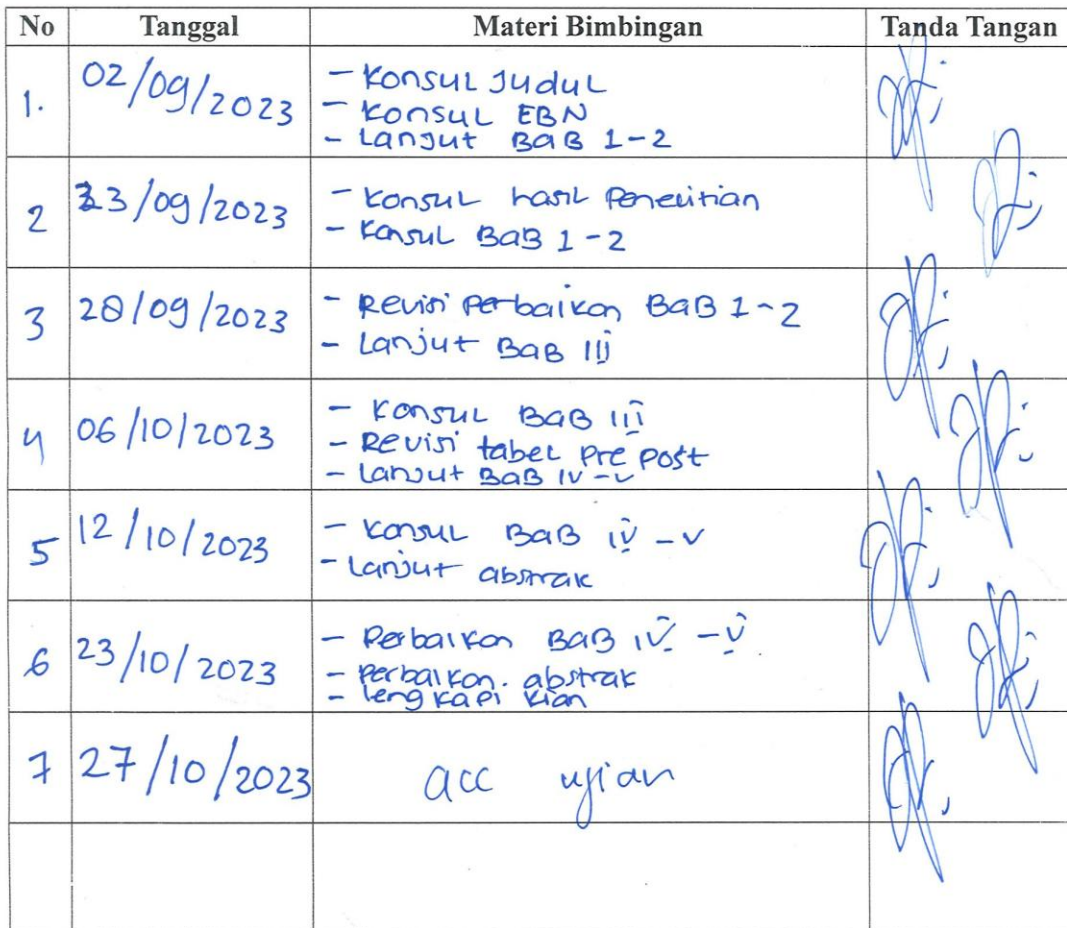 No Tanggal Materi Bimbingan Tanda Tangan
1. 02/09/2023 - Konsul Judul
- Konsul EBN
- Lanjut BAB 1-2
2 23/09/2023 - Konsul hasil Penelitian
- Konsul BAB 1-2
3 28/09/2023 - Revisi Perbaikan BAB 1-2
- Lanjut BAB III
4 06/10/2023 - Konsul BAB III
- Revisi tabel Pre Post
- Lanjut BAB IV-V
5 12/10/2023 - Konsul BAB IV - V
- Lanjut abstrak
6 23/10/2023 - Perbaikan BAB IV - V
- Perbaikan. abstrak
- Lengkapi Kian
7 27/10/2023 acc ujian